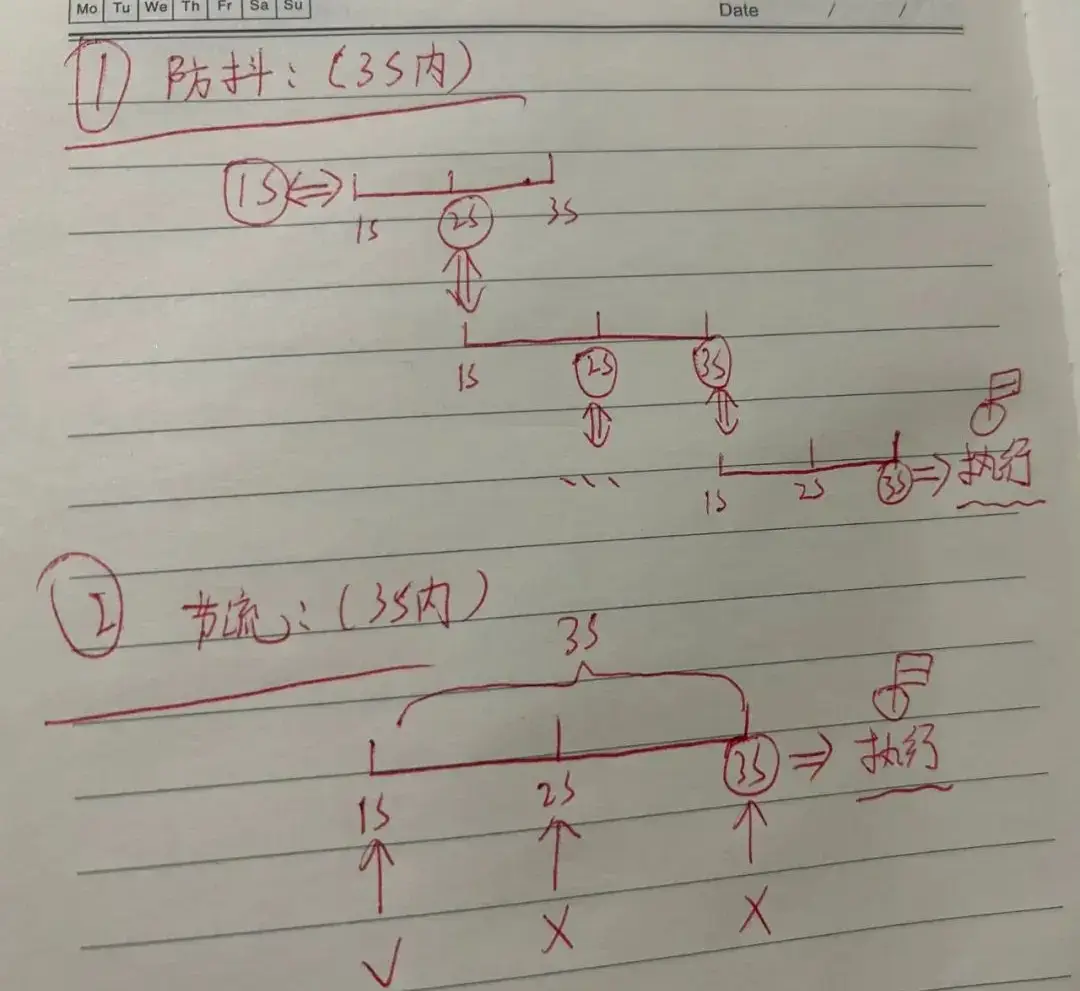 Mo Tu We Th Fr Sa Su Date / /
① 防抖:(3S内)
1S ⇔
1S 2S 3S
1S 2S 3S
... 1S 2S 3S ⇒ 执行
② 节流:(3S内)
3S
1S 2S 3S ⇒ 执行
√ X X